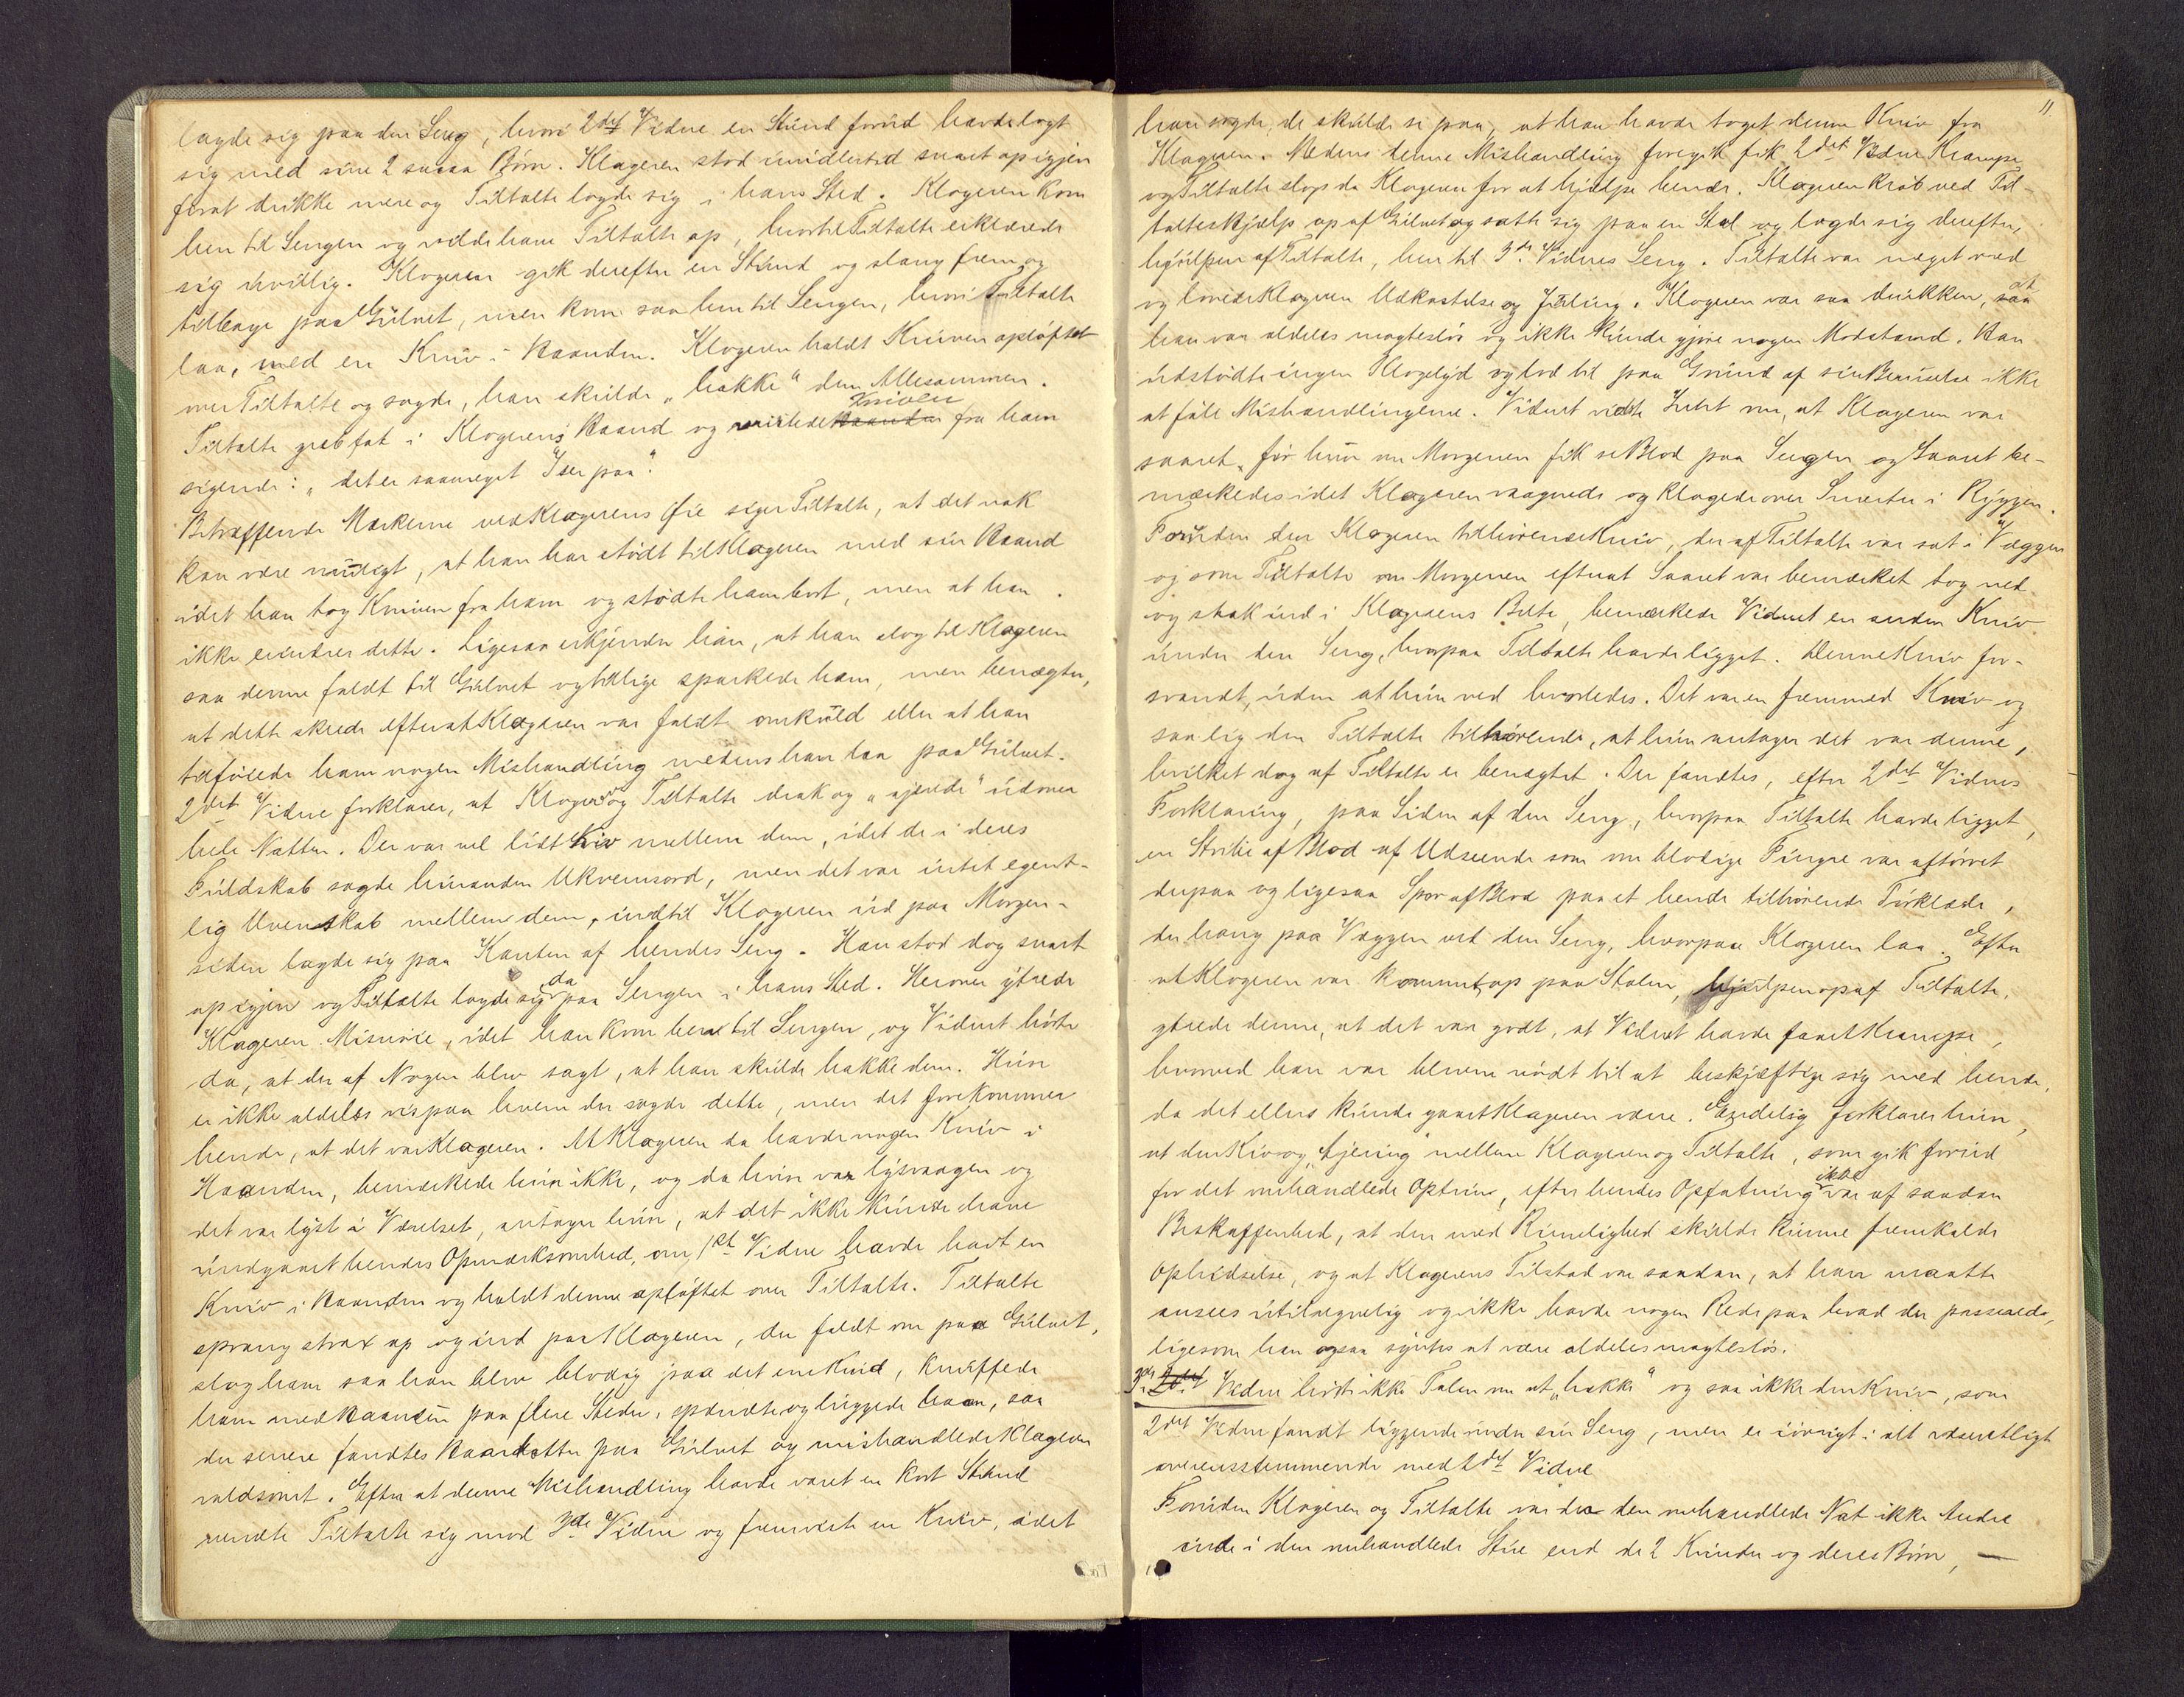 lagde sig paa den Seng, hvori 2det Vidne en Stund forud havde lagt
sig med sine 2 smaa Børn. Klageren stod imidlertid snart op igjen
forat drikke mere og Tiltalte lagde sig i hans Sted. Klageren kom
hen til Sengen og vilde have Tiltalte op, hvortil Tiltalte erklærede
sig uvillig. Klageren gik derefter en Stund og slang frem og
tilbage paa Gulvet, men kom saa hen til Sengen, hvori Tiltalte
laa, med en Kniv i Haanden. Klageren holdt Kniven opløftet
over Tiltalte og sagde, han skulde "hakke" dem Allesammen.
Tiltalte greb fat i Klagerens Haand og vristede Haanden Kniven fra ham
sigende: "det er saameget I ser paa".
Betræffende Mærkerne ved Klagerens Øie siger Tiltalte, at det nok
kan være muligt, at han har stødt til Klageren med sin Haand
idet han tog Kniven fra ham og stødte ham bort, men at han
ikke erindrer dette. Ligesaa erkjender han, at han slog til Klageren
saa denne faldt til Gulvet og tillige sparkede ham, men benægter,
at dette skede efterat Klageren var faldt omkuld eller at han
tilføiede ham nogen Mishandling medens han laa paa Gulvet.
2det Vidne forklarer, at Klageren og Tiltalte drak og "ajerede" udover
hele Natten. Der var vel lidt Kiv mellem dem, idet de i deres
Fuldskab sagde hinanden Ukvemsord, men det var intet egent-
lig Uvenskab mellem dem, indtil Klageren ud paa Morgen-
siden lagde sig paa Kanten af hendes Seng. Han stod dog snart
op igjen og Tiltalte lagde sig da paa Sengen i hans Sted. Herover ytrede
Klageren Misnøie, idet han kom hen til Sengen, og Vidnet hørte
da, at der af Nogen blev sagt, at han skulde hakke dem. Hun
er ikke aldeles vis paa hvem der sagde dette, men det forekommer
hende, at det var Klageren. At Klageren da havde nogen Kniv i
Haanden, bemærkede hun ikke, og da hun var lysvaagen og
det var lyst i Værelset, antager hun, at det ikke kunde have
undgaaet hendes Opmærksomhed, om 1ste Vidne havde havt en
Kniv i Haanden og holdt denne opløftet over Tiltalte. Tiltalte
sprang strax op og ind paa Klageren, der faldt om paa Gulvet,
slog ham saa han blev blodig paa det ene Kind, knuffede
ham med Haanden paa flere Steder, spændte og luggede ham, saa
der senere fandtes Haardotter paa Gulvet og mishandlede Klageren
voldsomt. Efter at denne Mishandling havde varet en kort Stund
vendte Tiltalte sig mod 3de Vidne og fremviste en Kniv, idet
11
han sagde, de skulde se paa, at han havde taget denne Kniv fra
Klageren. Medens denne Mishandling foregik fik 2det Vidne Krampe
og Tiltalte slap da Klageren for at hjælpe hende. Klageren krøb ved Til-
taltes Hjælp op af Gulvet og satte sig paa en Stol og lagde sig derefter,
hjulpen af Tiltalte, hen til 3de Vidnes Seng. Tiltalte var meget vred
og lovede Klageren Udkastelse og Juling. Klageren var saa drukken, saa at
han var aldeles magtesløs og ikke kunde gjøre nogen Modstand. Han
udstødte ingen Klagelyd og lod til paa Grund af sin Beruselse ikke
at føle Mishandlingerne. Vidnet vidste Intet om, at Klageren var
saaret, før hun om Morgenen fik se Blod paa Sengen og Saaret be-
mærkedes idet Klageren vaagnede og klagede over Smerter i Ryggen.
Foruden den Klageren tilhørende Kniv, der af Tiltalte var sat i Væggen
og som Tiltalte om Morgenen efterat Saaret var bemærket tog ned
og stak ind i Klagerens Belte, bemærkede Vidnet en anden Kniv
under den Seng, hvorpaa Tiltalte havde ligget. Denne Kniv for-
svandt, uden at hun ved hvorledes. Det var en fremmed Kniv og
saa lig den Tiltalte tilhørende, at hun antager det var denne,
hvilket dog af Tiltalte er benægtet. Der fandtes, efter 2det Vidnes
Forklaring, paa Siden af den Seng, hvorpaa Tiltalte havde ligget,
en Stribe af Blod af Udseende som om blodige Fingre var aftørret
derpaa og ligesaa Spor af Blod paa et hende tilhørende Forklæde,
der hang paa Væggen ved den Seng, hvorpaa Klageren laa. Efter
at Klageren var kommet op paa Stolen, hjulpen op af Tiltalte,
ytrede denne, at det var godt, at Vidnet havde faaet Krampe,
hvorved han var bleven nødt til at beskjæftige sig med hende,
da det ellers kunde gaaet Klageren værre. Endelig forklarer hun,
at den Kiv og "Ajering" mellem Klageren og Tiltalte, som gik forud
for det omhandlede Optrin, efter hendes Opfatning ikke var af saadan
Beskaffenhed, at den med Rimelighed skulde kunne fremkalde
Ophidselse, og at Klagerens Tilstand var saadan, at han maatte
ansees utilregnelig og ikke havde nogen Rede paa hvad der passerede,
ligesom han ogsaa syntes at være aldeles magtesløs.
3de 2det Vidne hørte ikke Talen om at "hakke" og saa ikke den Kniv, som
2det Vidne fandt liggende under sin Seng, men er iøvrigt i alt væsentligt
overensstemmende med 2det Vidne
Foruden Klageren og Tiltalte var der den omhandlede Nat ikke Andre
inde i den omhandlede Stue end de 2 Kvinder og deres Børn, —